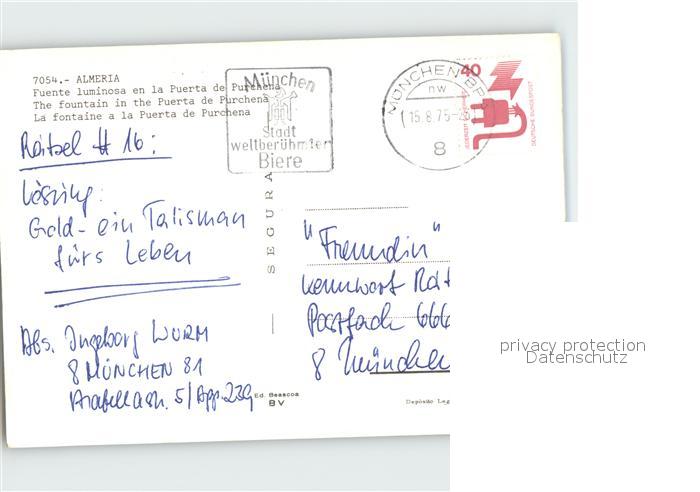 7054.- ALMERIA
Fuente luminosa en la Puerta de Purchena
The fountain in the Puerta de Purchena
La fontaine a la Puerta de Purchena
München
Stadt
weltberühmter
Biere
MÜNCHEN BP
nw
15.8.75
8
40
JEDERZEIT SICHERHEIT
DEUTSCHE BUNDESPOST
Rätsel # 16:
Lösung:
Gold - ein Talisman
fürs Leben
Abs. Ingeborg WURM
8 MÜNCHEN 81
Arabellastr. 5/App. 239
SEGURA
"Freundin"
Kennwort Rät
Postfach 666
8 München
Ed. Beascoa
BV
Depósito Leg
privacy protection
Datenschutz